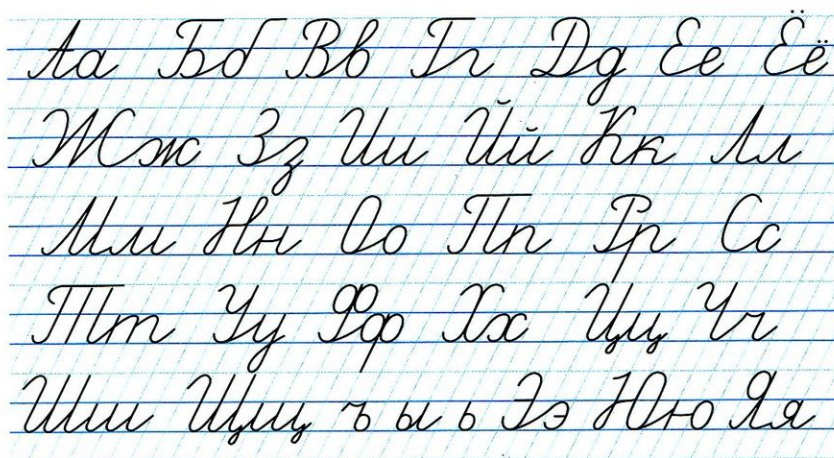 Аа Бб Вв Гг Дд Ее Ёё
Жж Зз Ии Йй Кк Лл
Мм Нн Оо Пп Рр Сс
Тт Уу Фф Хх Цц Чч
Шш Щщ ъ ы ь Ээ Юю Яя